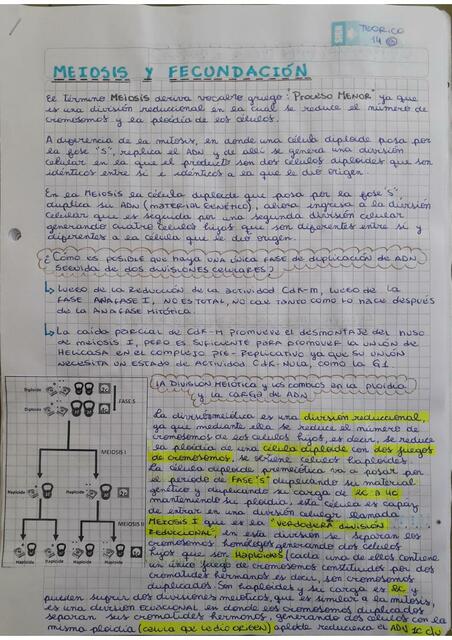 TEORICO
14
MEIOSIS Y FECUNDACIÓN
El Término MEIOSIS deriva vocablo griego "Proceso MENOR" ya que
es una división reduccional en la cual se reduce el número de
cromosomas y la ploidía de las células.
A diferencia de la mitosis, en donde una célula diploide pasa por
la fase "S", replica el ADN y de allí se genera una división
celular en la que el producto son dos células diploides que son
idénticas entre si e idénticas a la que le dio origen.
En la MEIOSIS la célula diploide que pasa por la fase "S",
duplica su ADN (MATERIAL GENÉTICO), ahora ingresa a la división
celular que es seguida por una segunda división celular
generando cuatro células hijas que son diferentes entre si y
diferentes a la célula que le dio origen.
¿Cómo es posible que haya una única fase de duplicación de ADN
seguida de dos divisiones celulares?
Luego de la reducción de la actividad Cdk-M, luego de la
FASE ANAFASE I, no es total, no cae tanto como lo hace después
de la ANAFASE MITÓTICA.
La caída parcial de Cdk-M promueve el desmontaje del huso
de meiosis I, pero es suficiente para promover la unión de
Helicasa en el complejo pre-replicativo ya que su unión
necesita un estado de actividad Cdk-nula, como la G1
LA DIVISIÓN MEIÓTICA y los cambios en la ploidía
y la carga de ADN
Diploide
FASE S
Diploide
MEIOSIS I
Haploide
Haploide
MEIOSIS II
Haploide
Haploide
Haploide
La división meiótica es una división reduccional,
ya que mediante ella se reduce el número de
cromosomas de las células hijas, es decir, se reduce
la ploidía de una célula diploide con dos juegos
de cromosomas, se obtiene células haploides.
La célula diploide premeiótica va a pasar por
el periodo de FASE "S" duplicando su material
genético y duplicando su carga de 2C a 4C
manteniendo su ploidía, esta célula es capaz
de entrar en una división celular llamada
MEIOSIS I que es la "VERDADERA DIVISIÓN
REDUCCIONAL", en esta división se separan los
cromosomas homólogos generando dos células
hijas que son Haploides (cada una de ellas contiene
un único juego de cromosomas constituidos por dos
cromátides hermanas es decir, son cromosomas
duplicados. Son haploides y su carga es 2C y
pueden sufrir dos divisiones meióticas, que es similar a la mitosis,
es una división ecuacional en donde los cromosomas duplicados
separan sus cromátides hermanas, generando dos células con la
misma ploidía (célula que le dio origen) ADN 1C c/u